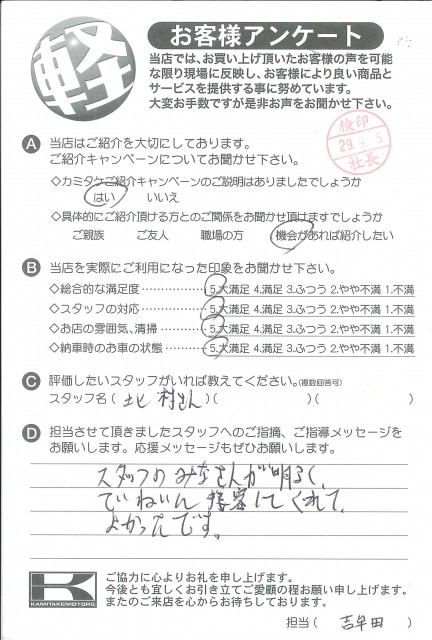 軽
お客様アンケート
当店では、お買い上げ頂いたお客様の声を可能
な限り現場に反映し、お客様により良い商品と
サービスを提供する事に努めています。
大変お手数ですが是非お声をお聞かせ下さい。
検印
29.9.5
社長
A 当店はご紹介を大切にしております。
ご紹介キャンペーンについてお聞かせ下さい。
◇カミタケご紹介キャンペーンのご説明はありましたでしょうか
はい いいえ
◇具体的にご紹介頂ける方とのご関係をお聞かせ頂けますでしょうか
ご親族 ご友人 職場の方 機会があれば紹介したい
B 当店を実際にご利用になった印象をお聞かせ下さい。
◇総合的な満足度 5.大満足 4.満足 3.ふつう 2.やや不満 1.不満
◇スタッフの対応 5.大満足 4.満足 3.ふつう 2.やや不満 1.不満
◇お店の雰囲気、清掃 5.大満足 4.満足 3.ふつう 2.やや不満 1.不満
◇納車時のお車の状態 5.大満足 4.満足 3.ふつう 2.やや不満 1.不満
C 評価したいスタッフがいれば教えてください。(複数回答可)
スタッフ名( 北村さん )( )( )
D 担当させて頂きましたスタッフへのご指摘、ご指導メッセージを
お願いします。応援メッセージもぜひお願いします。
スタッフのみなさんが明るく、
ていねいに接客してくれて、
よかったです。
K
KAMITAKEMOTORS
ご協力に心よりお礼を申し上げます。
今後とも宜しくお引き立てご愛顧の程お願い申し上げます。
またのご来店を心からお待ちしております。
担当( 吉牟田 )